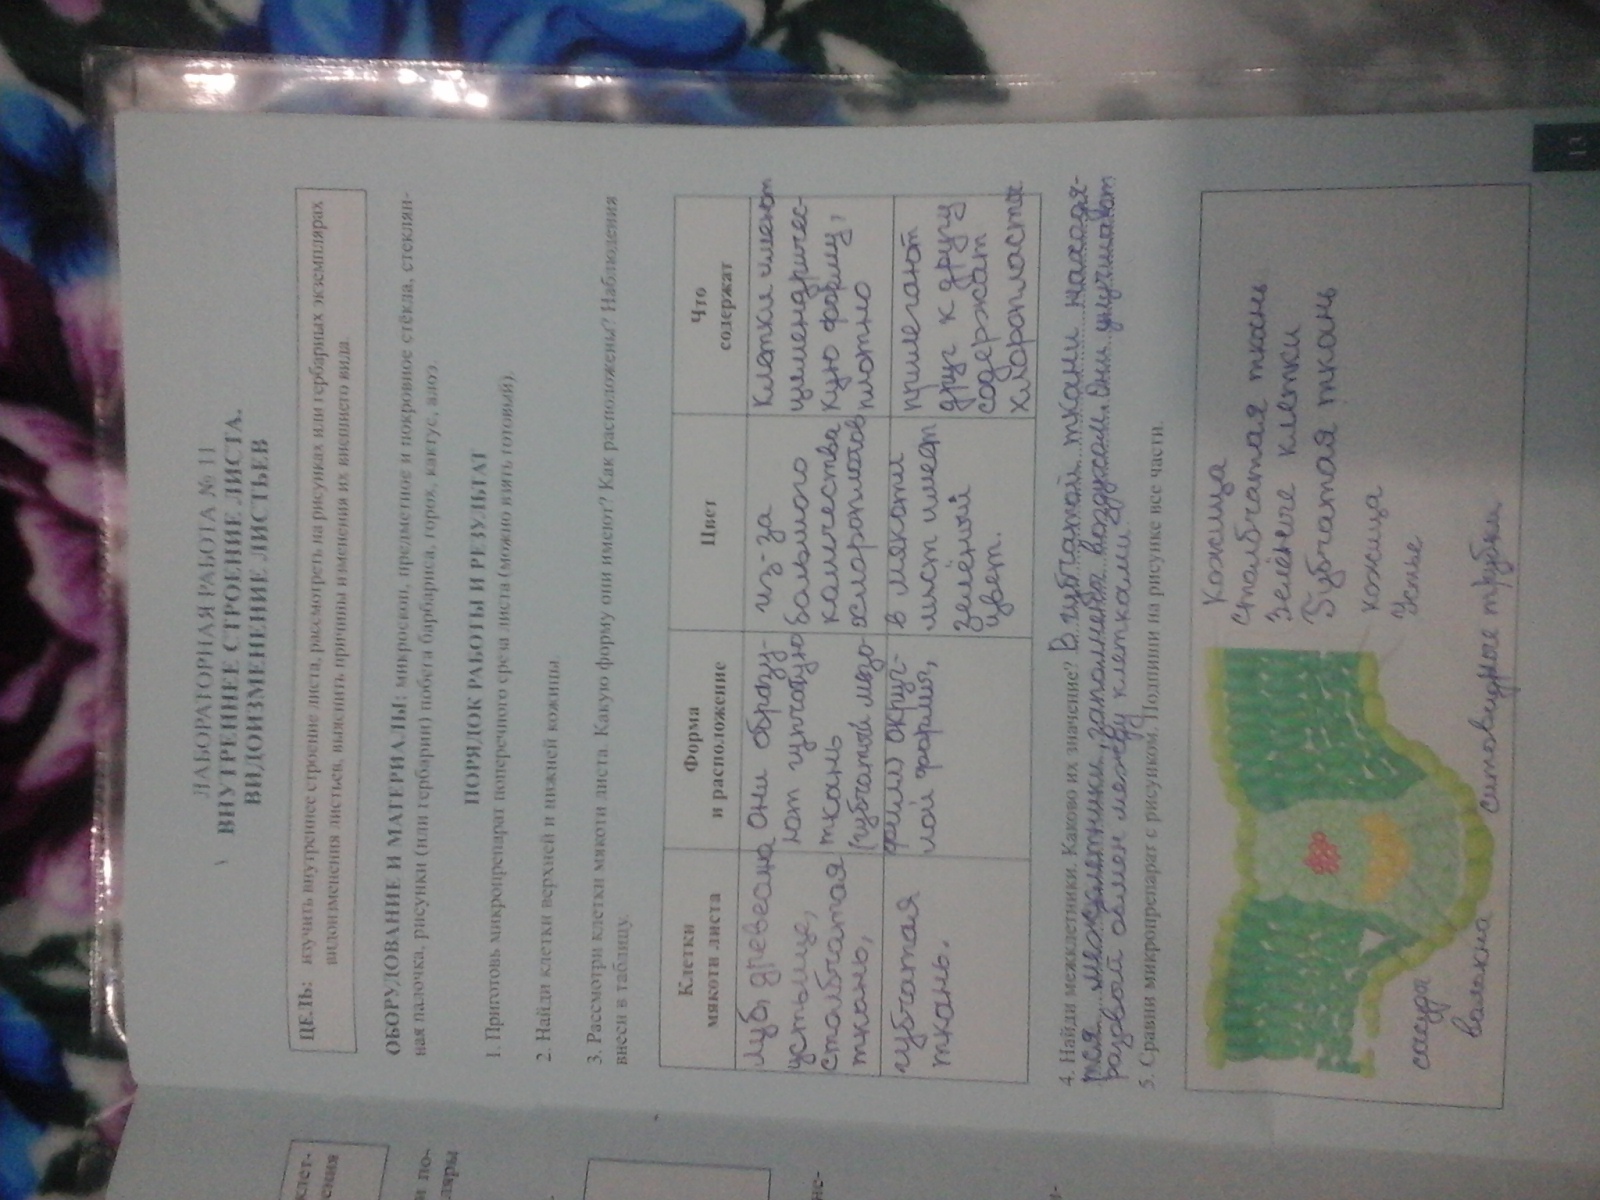 ЛАБОРАТОРНАЯ РАБОТА № 11
ВНУТРЕННЕЕ СТРОЕНИЕ ЛИСТА.
ВИДОИЗМЕНЕНИЕ ЛИСТЬЕВ
ЦЕЛЬ: изучить внутреннее строение листа, рассмотреть на рисунках или гербарных экземплярах
видоизменения листьев, выяснить причины изменения их внешнего вида.
ОБОРУДОВАНИЕ И МАТЕРИАЛЫ: микроскоп, предметное и покровное стёкла, стеклян-
ная палочка, рисунки (или гербарии) побега барбариса, горох, кактус, алоэ.
ПОРЯДОК РАБОТЫ И РЕЗУЛЬТАТ
1. Приготовь микропрепарат поперечного среза листа (можно взять готовый).
2. Найди клетки верхней и нижней кожицы.
3. Рассмотри клетки мякоти листа. Какую форму они имеют? Как расположены? Наблюдения
внеси в таблицу.
Клетки
мякоти листа
Форма
и расположение
Цвет
Что
содержат
луб, древесина
устьице,
столбчатая
ткань,
они образу-
ют губчатую
ткань
(губчатый мезо-
из-за
большого
количества
хлоропластов
клетки имеют
цилиндричес-
кую форму,
плотно
губчатая
ткань.
филл) округ-
лой формы,
в мякоти
лист имеет
зелёный
цвет.
прилегают
друг к другу
содержат
хлоропласты
4. Найди межклетники. Каково их значение? В губчатой ткани находя-
тся межклетники, заполнены воздухом. Они улучшают
газовой обмен между клетками.
5. Сравни микропрепарат с рисунком. Подпиши на рисунке все части.
Кожица
столбчатая ткань
Зелёные клетки
Губчатая ткань
кожица
Устье
сосуды
волокна
ситовидные трубки
13
клет-
ения
и по-
ляры